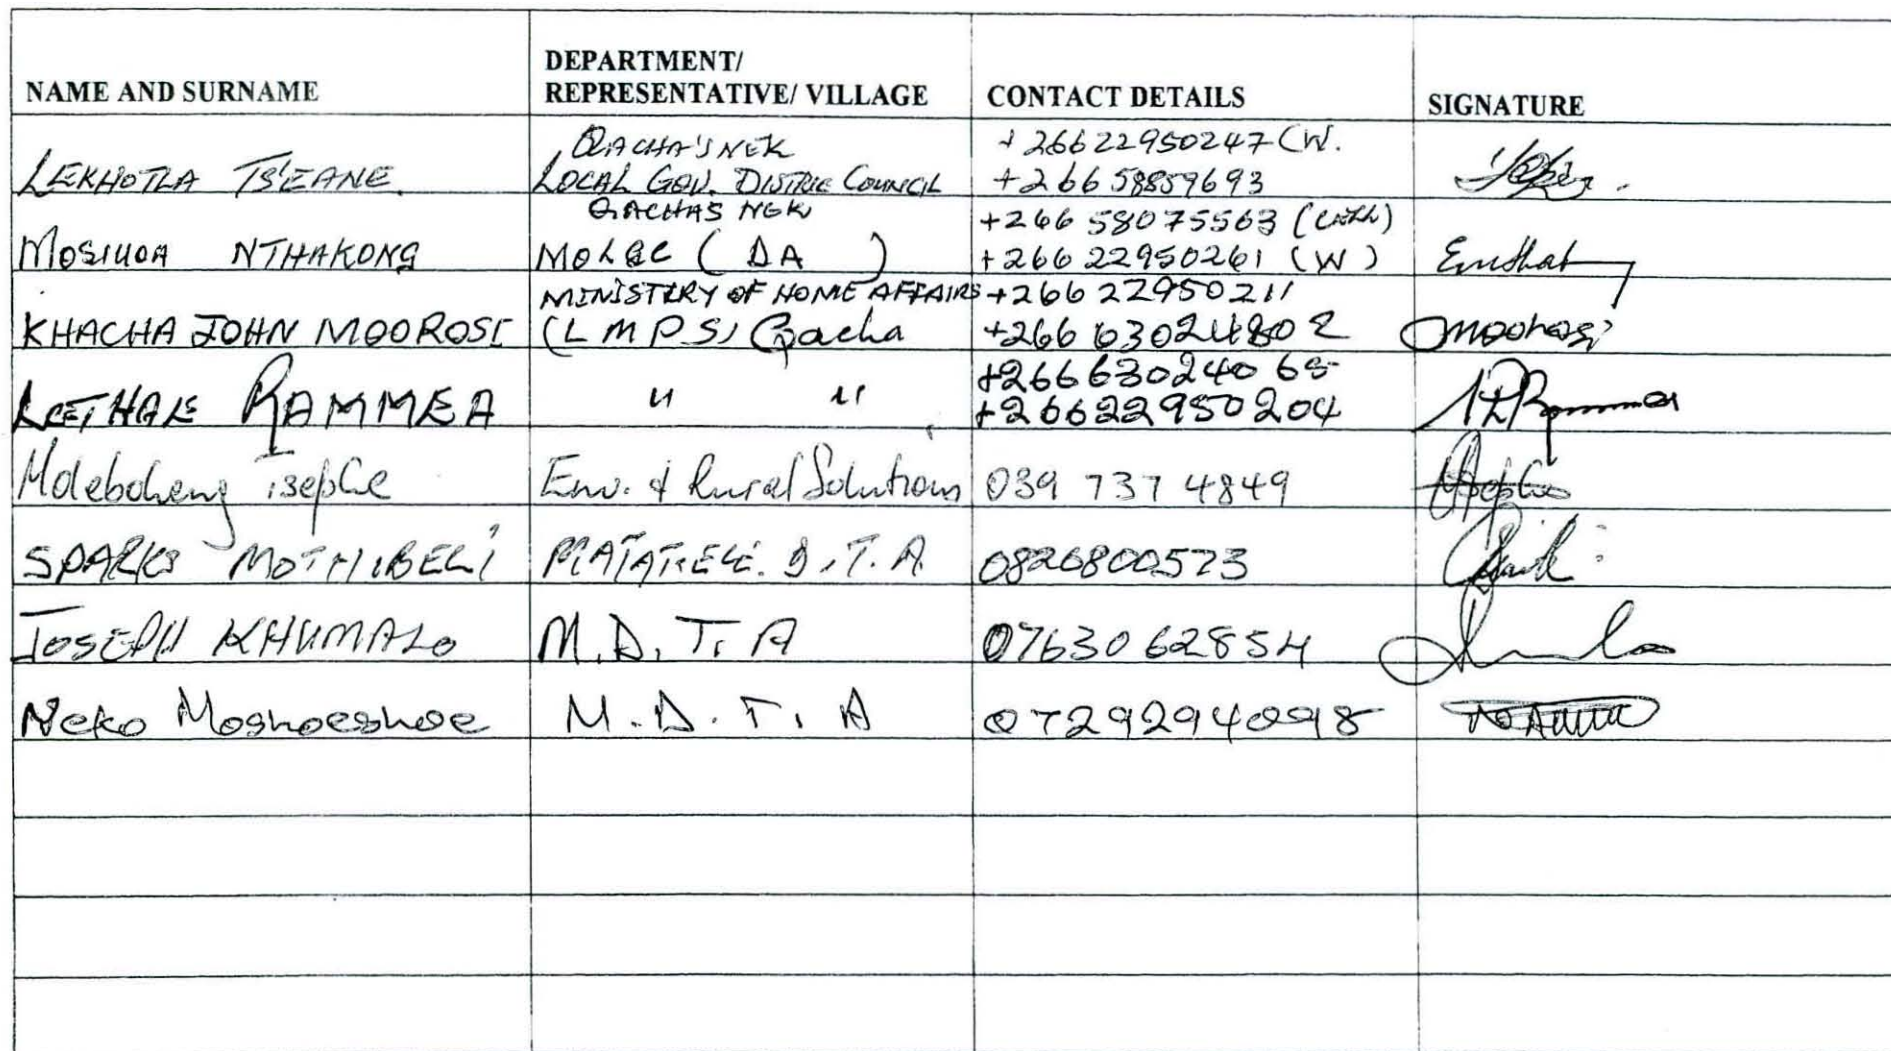 NAME AND SURNAME
DEPARTMENT/
REPRESENTATIVE/ VILLAGE
CONTACT DETAILS
SIGNATURE
LEKHOTLA TS'EANE
QACHA'S NEK
LOCAL GOV. DISTRIC COUNCIL
+26622950247 (W.
+266 58859693
MOSIUOA NTHAKONG
QACHAS NEK
MOLGC ( DA )
+266 58075563 (CELL)
+266 22950261 (W)
KHACHA JOHN MOOROSI
MINISTRY OF HOME AFFAIRS
(LMPS) Qacha
+266 22950211
+266 63024802
Moorosi
LETHALE RAMMEA
" "
+266630240 65
+26622950204
Moleboheng Tsephe
Env. & Rural Solutions
039 737 4849
SPARKS MOTHIBELI
MATATIELE. D.T.A.
0826800573
JOSEPH KHUMALO
M.D.T.A
0763062854
Neko Moshoeshoe
M.D.T.A
0729294098